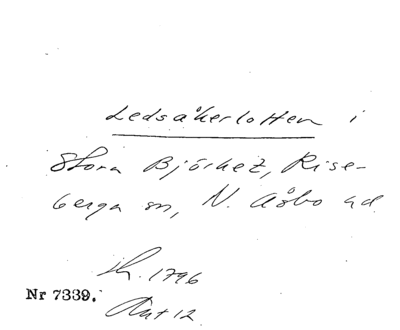 Ledsåkerlotten i
Stora Björket, Rise-
berga sn, N. Åsbo hd
h. 1796
Nr 7339.
Akt 12